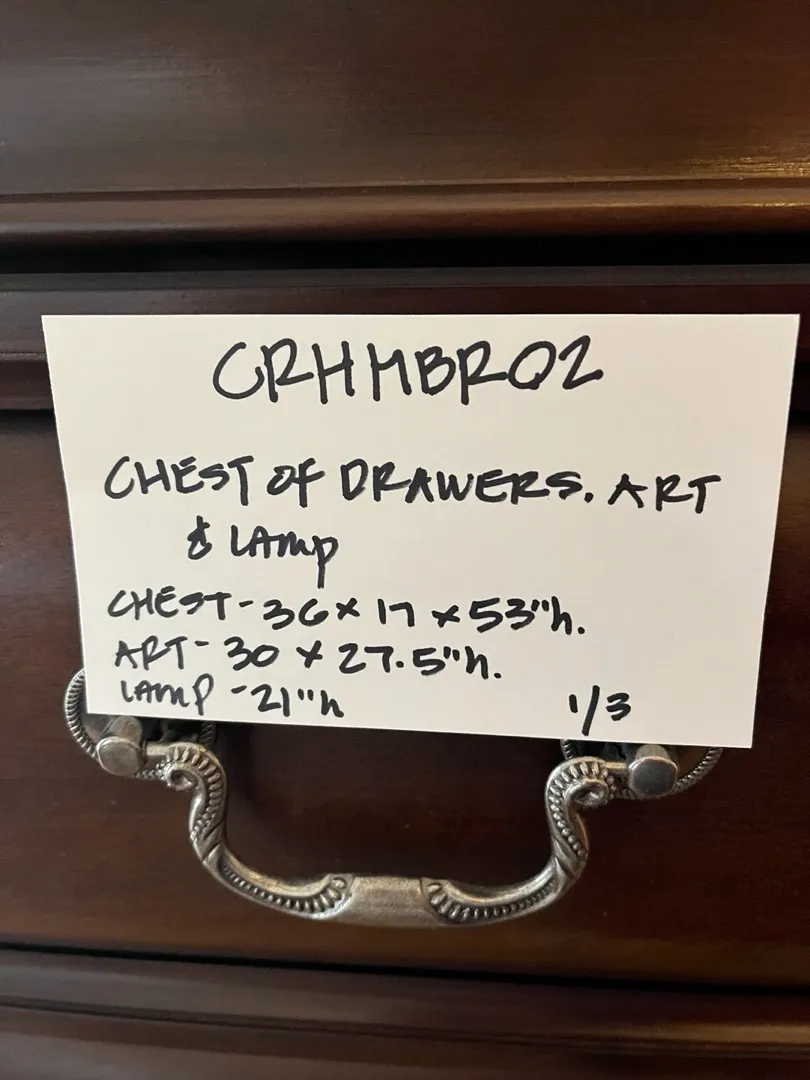 CRHMBR02
CHEST OF DRAWERS. ART
& LAMP
CHEST - 36 x 17 x 53"h.
ART - 30 x 27.5"h.
LAMP - 21"h
1/3